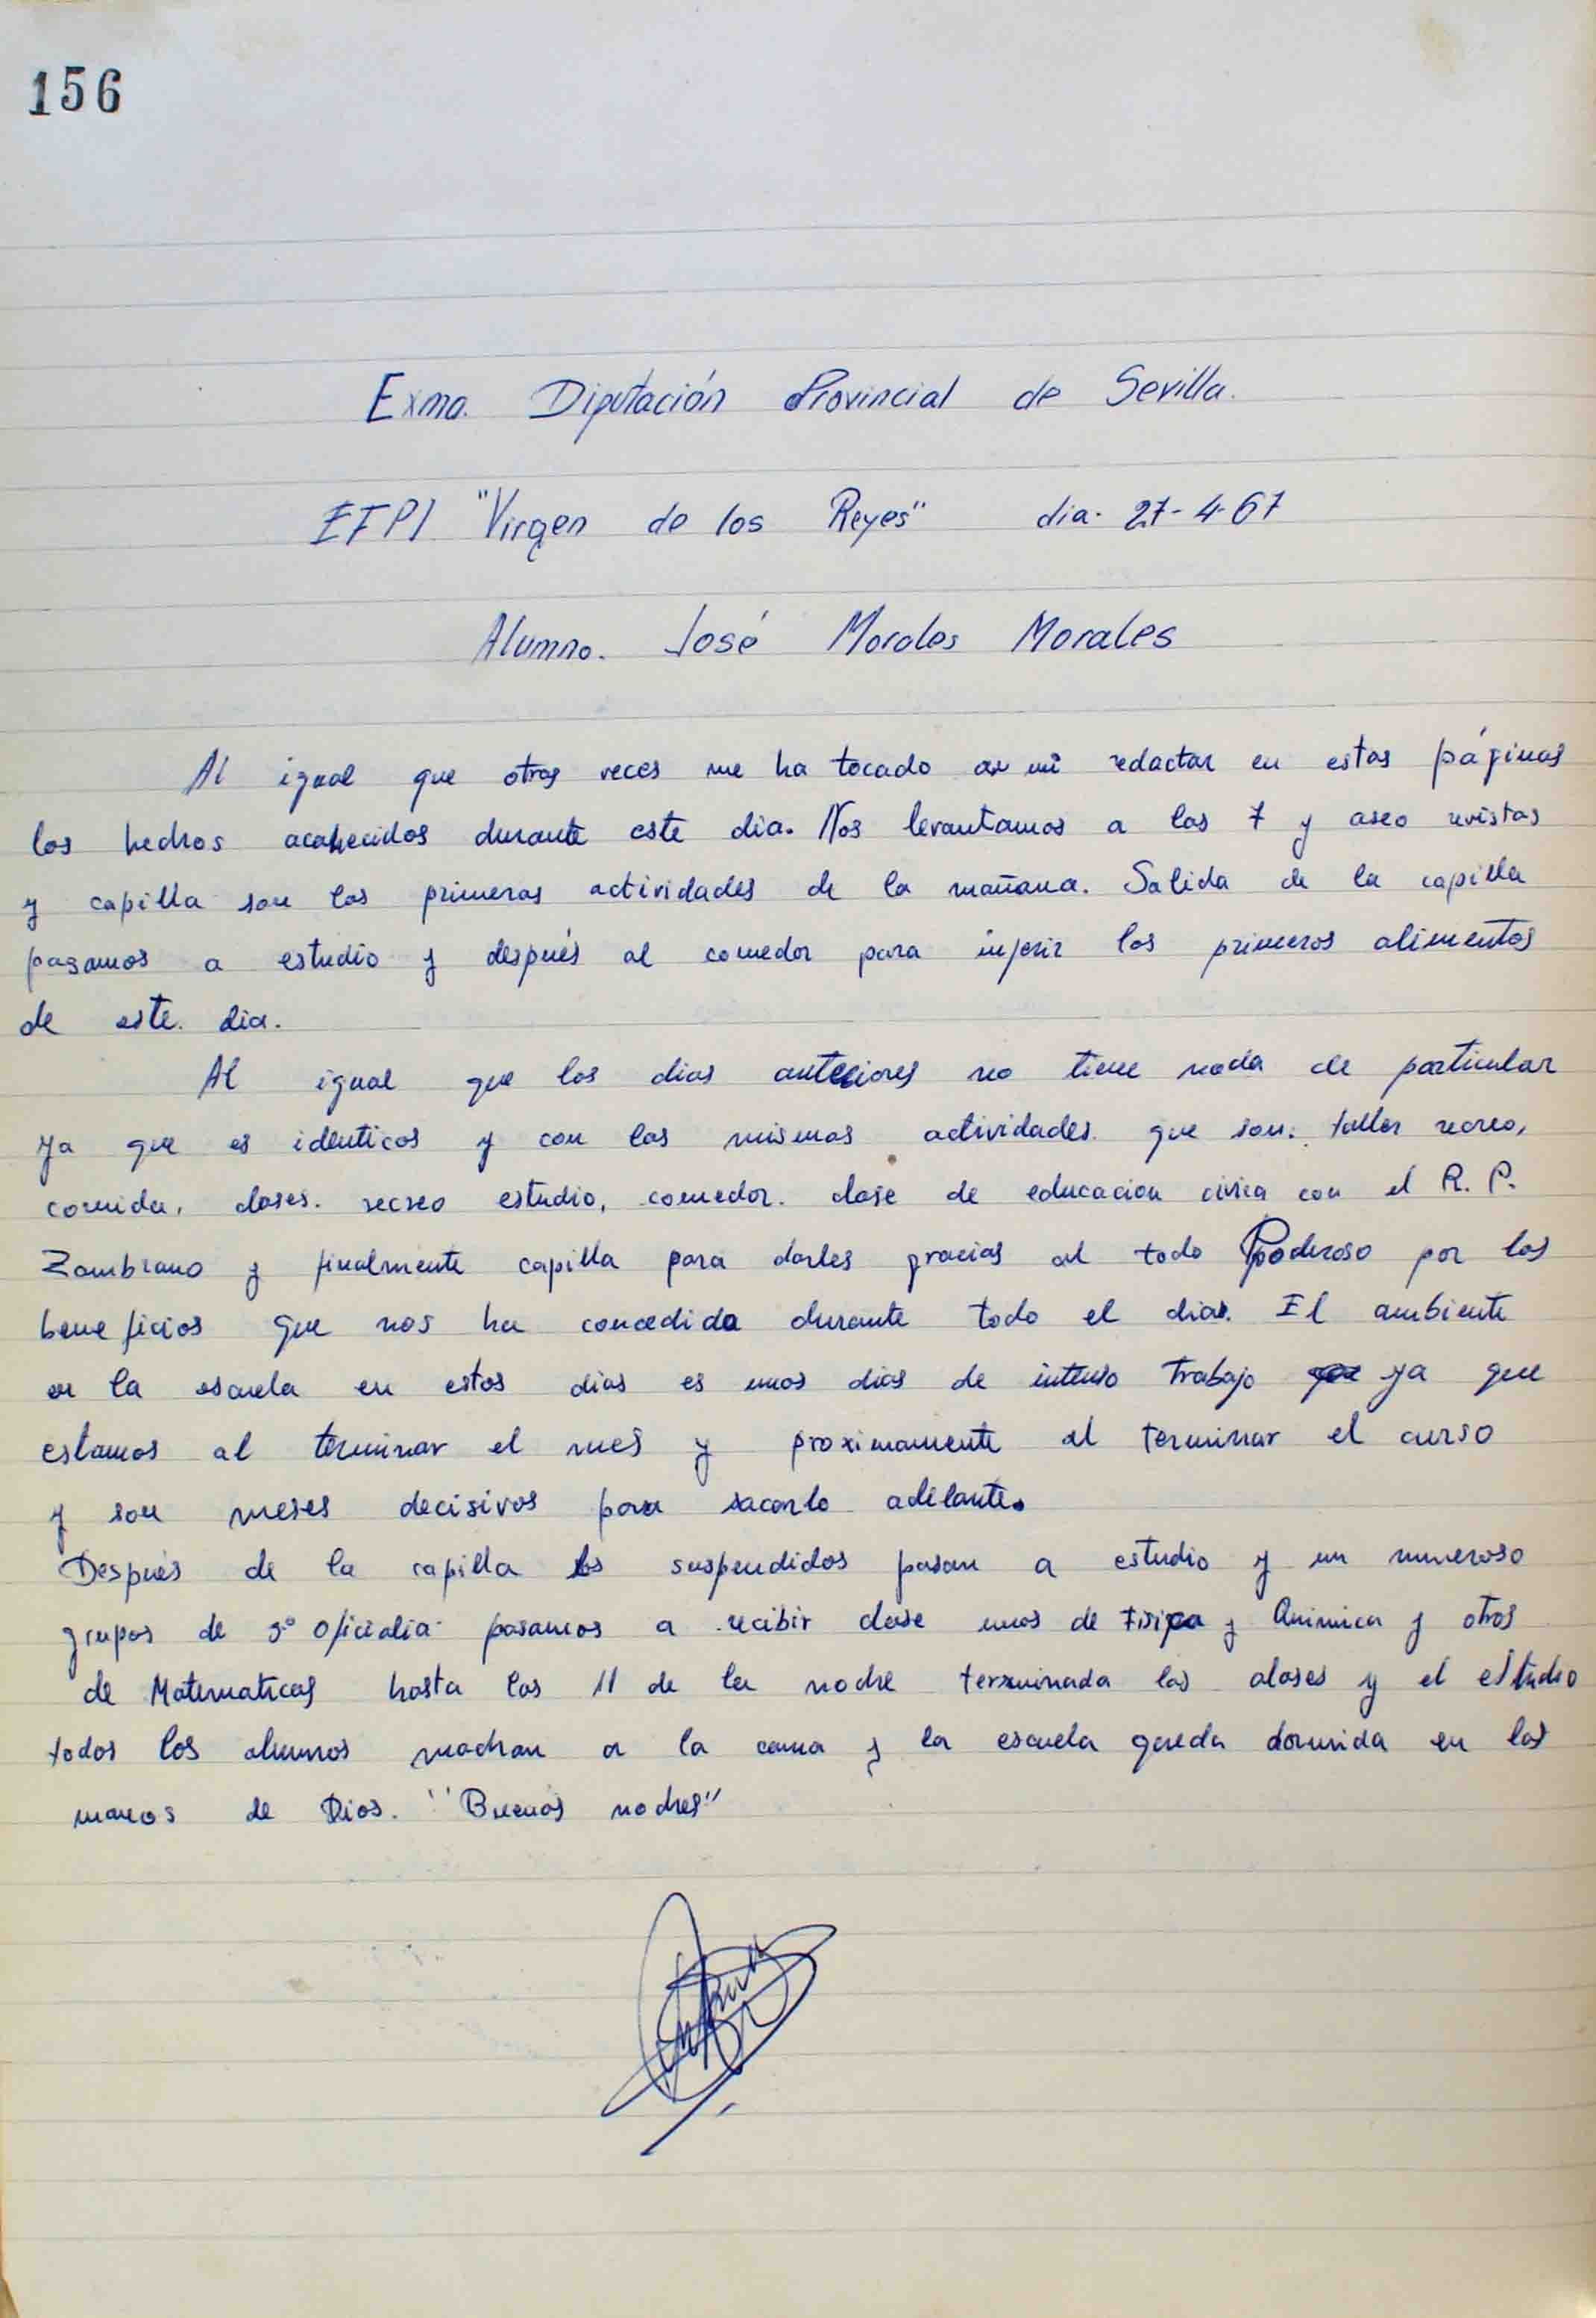 156
Exma. Diputación Provincial de Sevilla.
EFPI "Virgen de los Reyes" dia- 27-4-67
Alumno. José Morales Morales
Al igual que otras veces me ha tocado a mi redactar en estas páginas
los hechos acahecidos durante este dia. Nos levantamos a las 7 y aseo revistas
y capilla son las primeras actividades de la mañana. Salida de la capilla
pasamos a estudio y después al comedor para injerir los primeros alimentos
de este. dia.
Al igual que los dias anteriores no tiene nada de particular
ya que es identicos y con las mismas actividades que son: taller recreo,
comida, clases. recreo estudio, comedor. clase de educacion civica con el R. P.
Zambrano y finalmente capilla para darles gracias al todo Poderoso por los
beneficios que nos ha concedido durante todo el dia. El ambiente
en la escuela en estos dias es unos dias de intenso trabajo ya que
estamos al terminar el mes y proximamente al terminar el curso
y son meses decisivos para sacarlo adelante.
Después de la capilla los suspendidos pasan a estudio y un numeroso
grupos de 3º oficialia pasamos a recibir clase unos de Fisica y Quimica y otros
de Matematicas hasta las 11 de la noche terminada las clases y el estudio
todos los alumnos machan a la cama y la escuela queda dormida en las
manos de Dios. "Buenas noches"